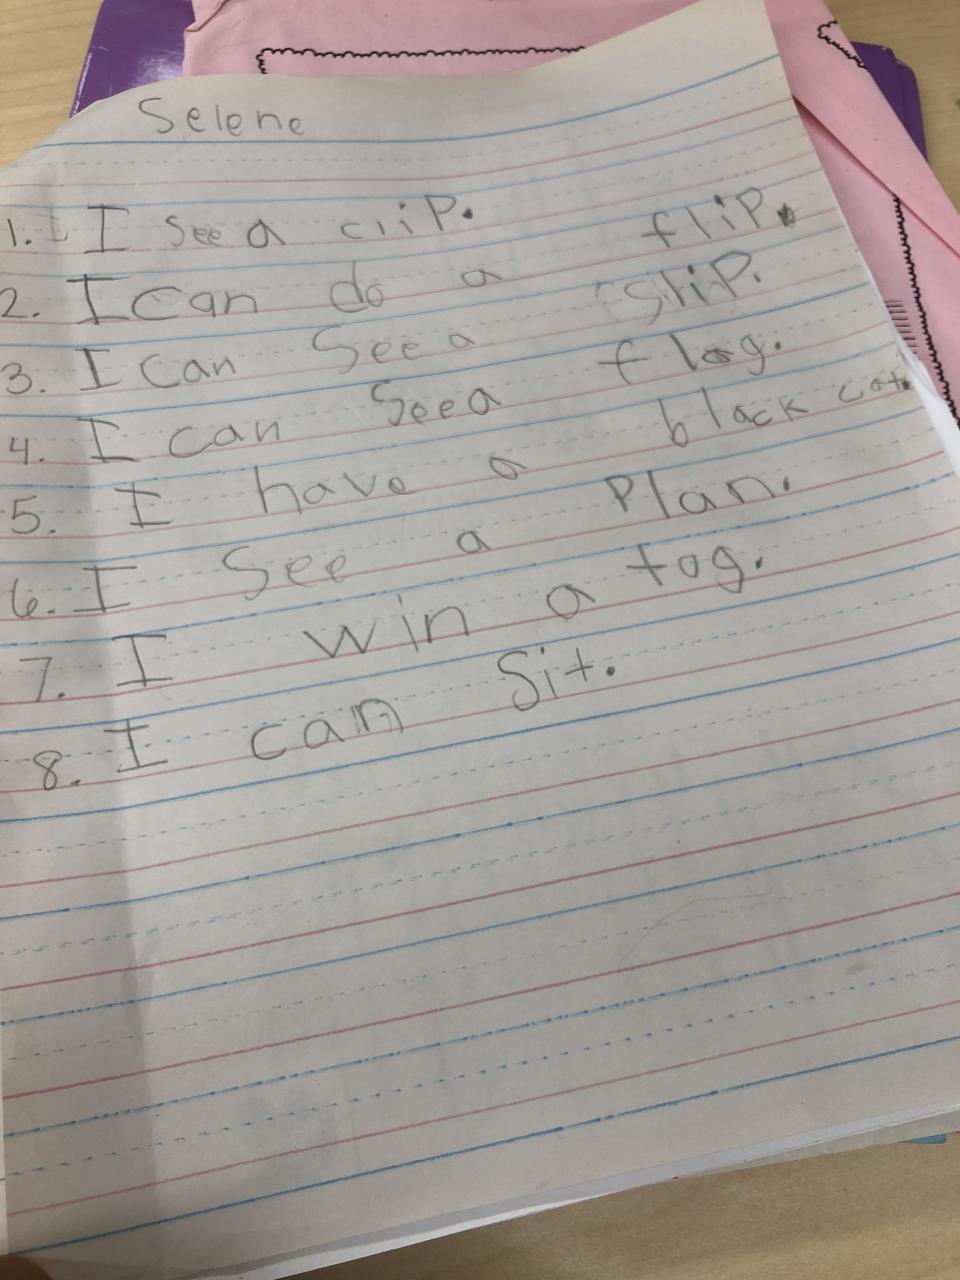 Selene
1. I see a clip.
2. I can do a flip.
3. I can See a slip.
4. I can See a flag.
5. I have a black cat.
6. I See a Plan.
7. I win a tag.
8. I can Sit.